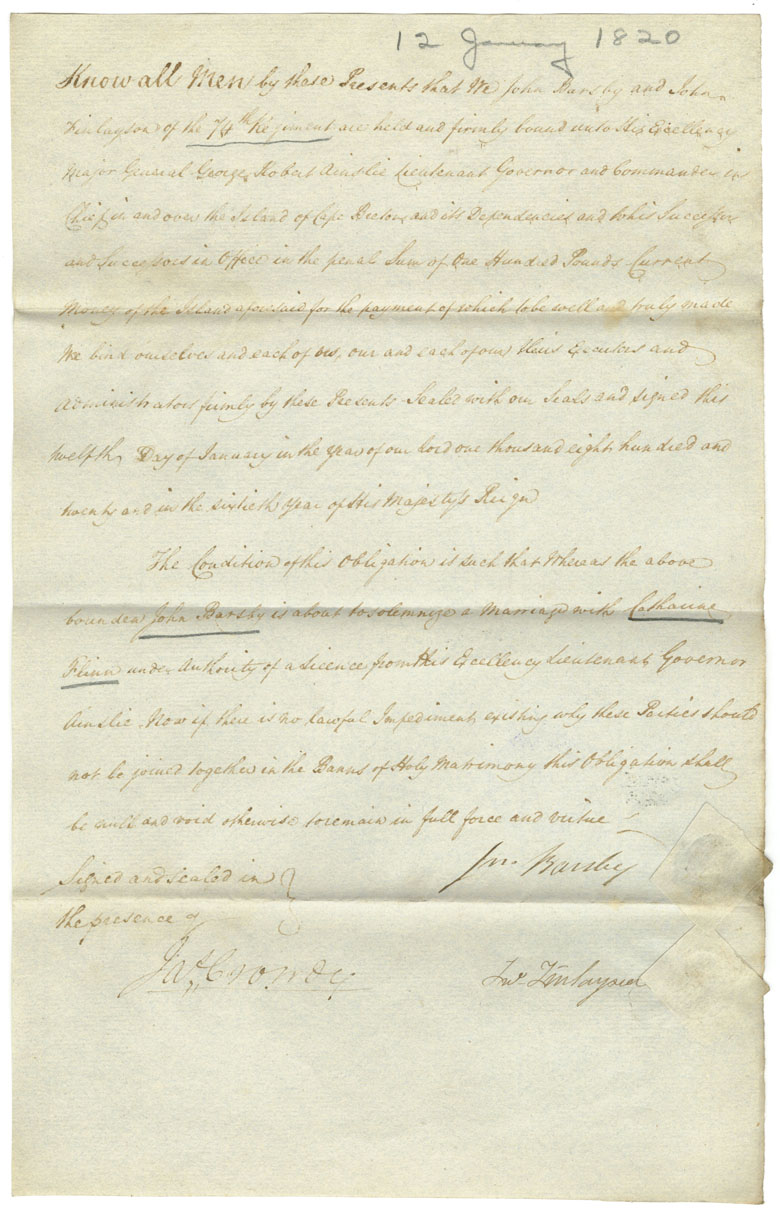 12 January 1820
Know all Men by these Presents that We John Barsby and John
Finlayson of the 74th Regiment are held and firmly bound unto His Excellency
Major General George Robert Ainslie Lieutenant Governor and Commander in
Chief in and over the Island of Cape Breton and its Dependencies and to his Successor
and Successors in Office in the penal Sum of One Hundred Pounds Current
Money of the Island aforesaid for the payment of which to be well and truly made
We bind ourselves and each of us, our and each of our Heirs Executors and
Administrators firmly by these Presents Sealed with our Seals and signed this
twelfth Day of January in the year of our Lord one thousand eight hundred and
twenty and in the sixtieth year of His Majesty's Reign
The Condition of this Obligation is such that Whereas the above
bounden John Barsby is about to solemnize a Marriage with Catharine
Flinn under Authority of a Licence from His Excellency Lieutenant Governor
Ainslie. Now if there is no Lawful Impediment existing why these Parties should
not be joined together in the Banns of Holy Matrimony this Obligation shall
be null and void otherwise to remain in full force and virtue
Jn. Barsby
Signed and sealed in
the presence of
Jas. Crowdy
Jno. Finlayson